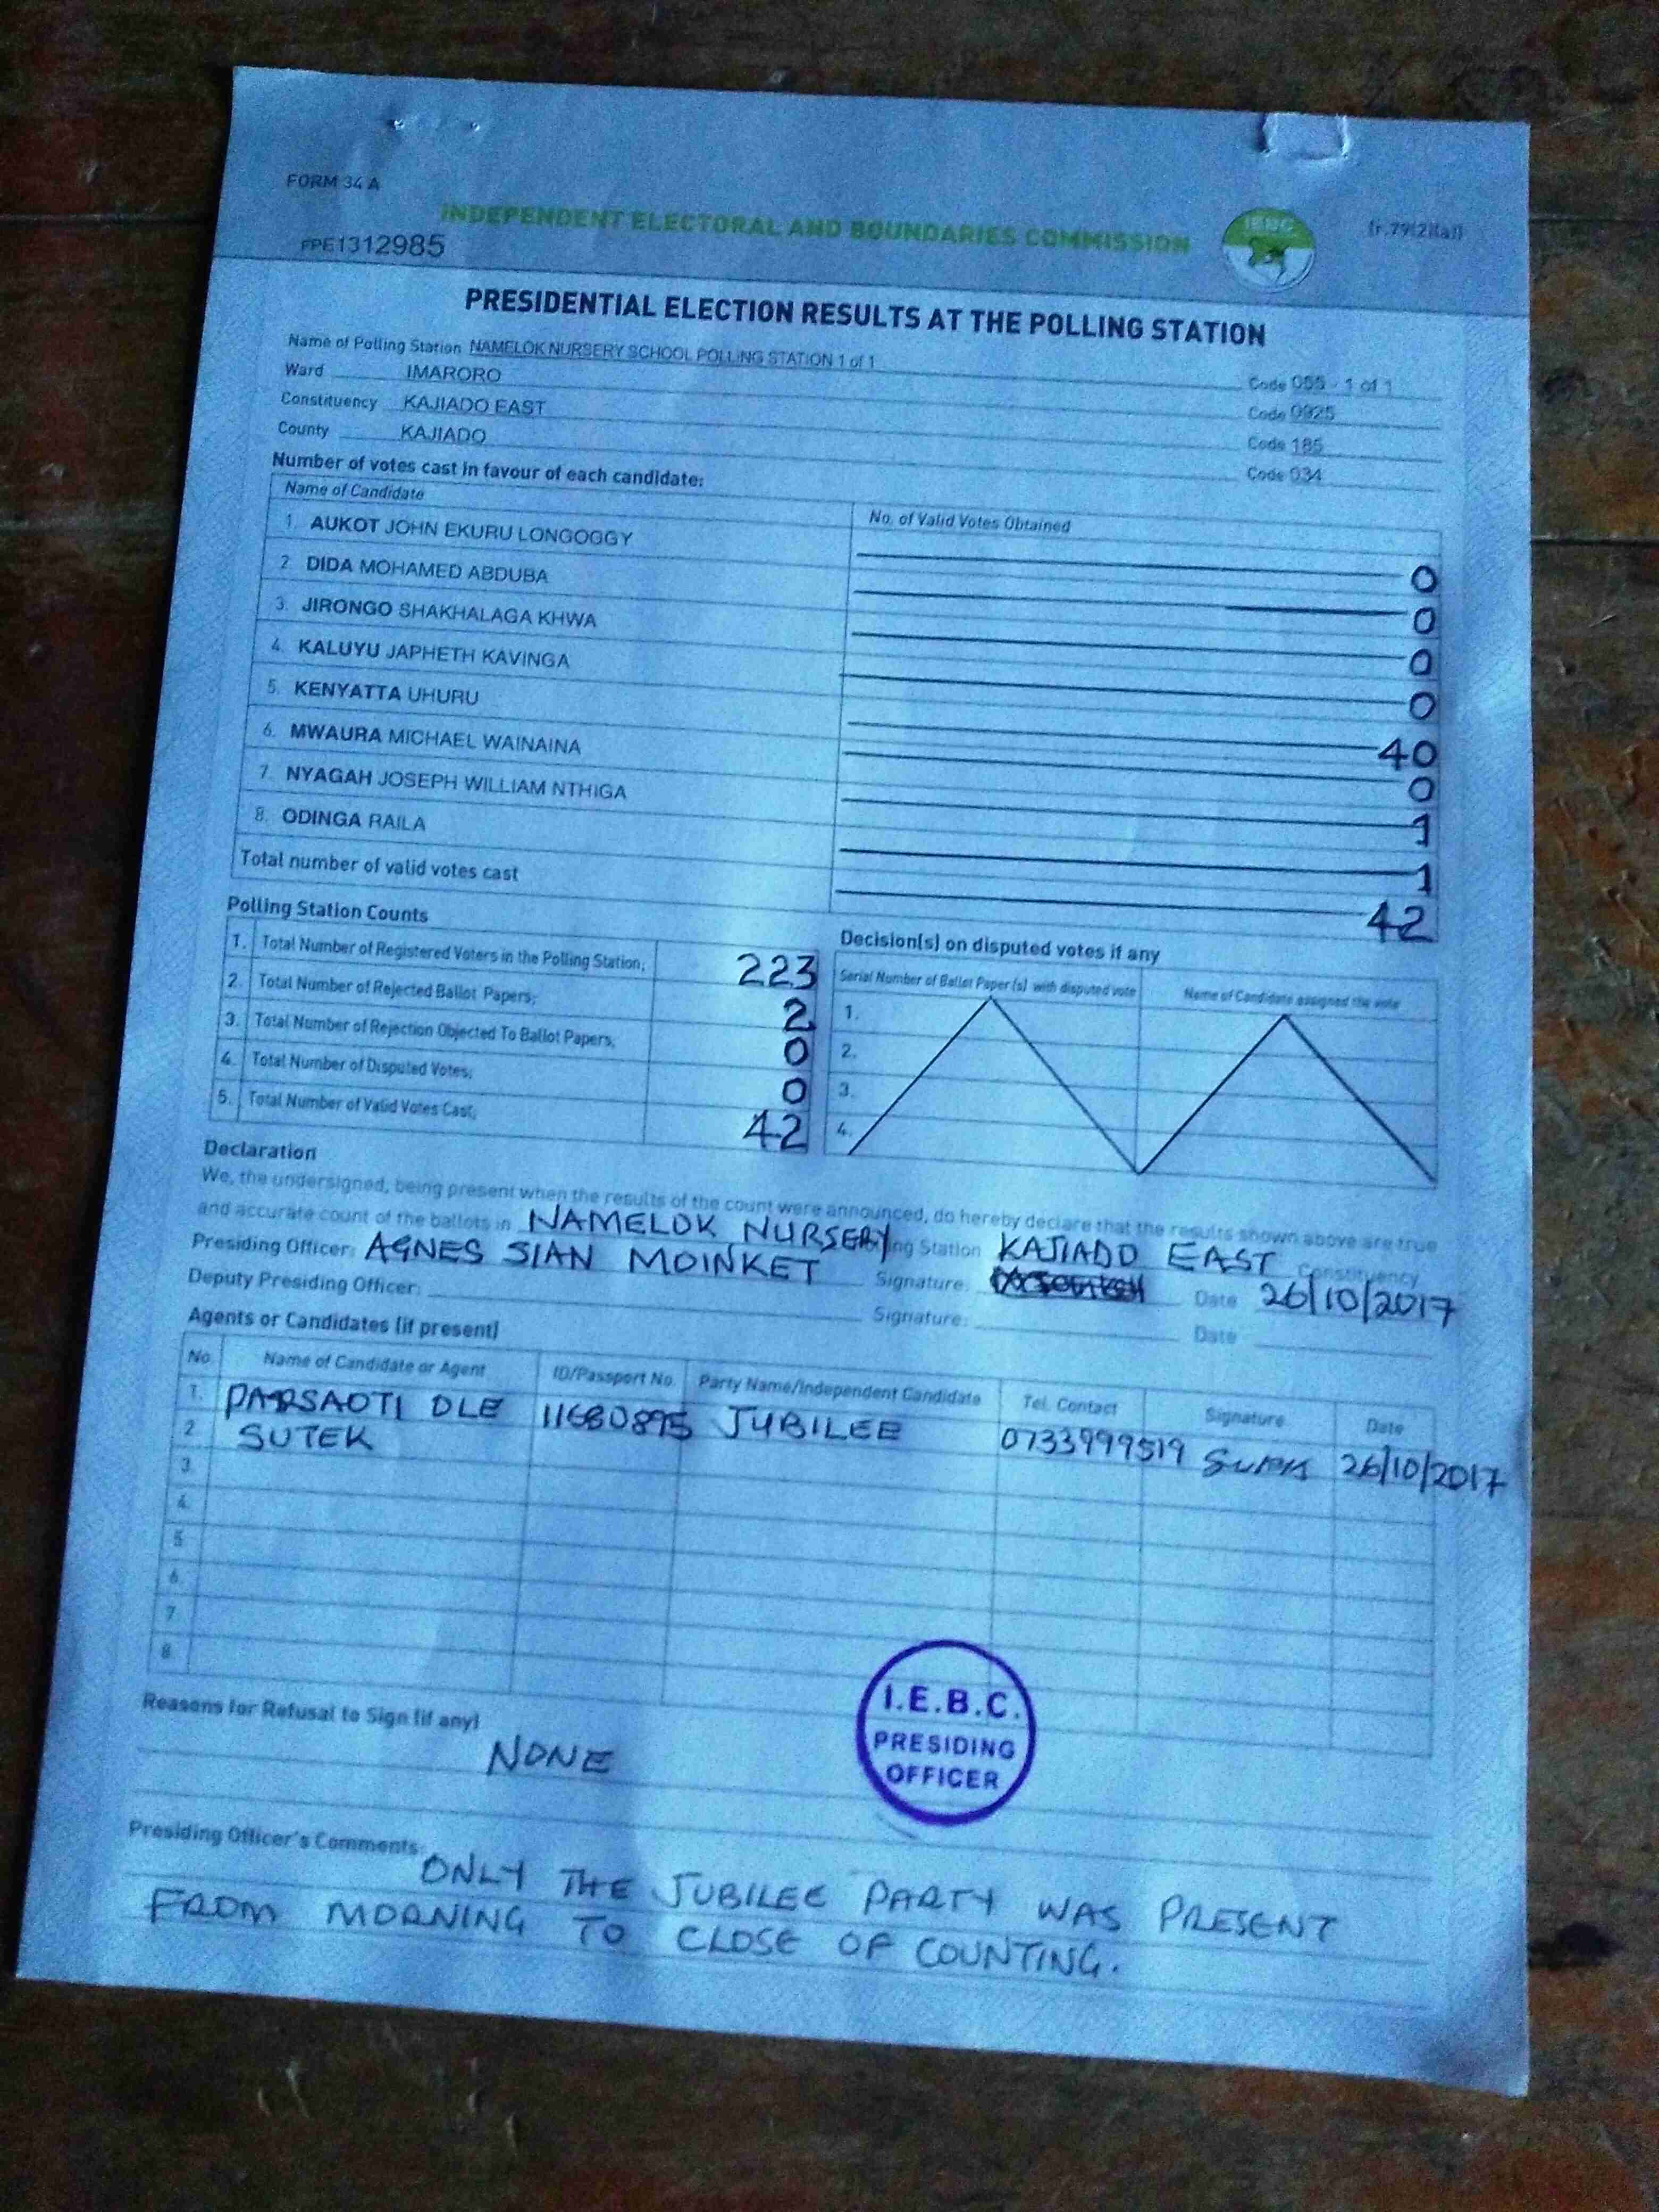 FORM 34 A
(r.79(2)(a))
INDEPENDENT ELECTORAL AND BOUNDARIES COMMISSION
IEBC
PPE1312985
PRESIDENTIAL ELECTION RESULTS AT THE POLLING STATION
Name of Polling Station NAMELOK NURSERY SCHOOL POLLING STATION 1 of 1 Code 055 - 1 of 1
Ward IMARORO Code 0925
Constituency KAJIADO EAST Code 185
County KAJIADO Code 034
Number of votes cast in favour of each candidate:
Name of Candidate No. of Valid Votes Obtained
1. AUKOT JOHN EKURU LONGOGGY 0
2. DIDA MOHAMED ABDUBA 0
3. JIRONGO SHAKHALAGA KHWA 0
4. KALUYU JAPHETH KAVINGA 0
5. KENYATTA UHURU 40
6. MWAURA MICHAEL WAINAINA 0
7. NYAGAH JOSEPH WILLIAM NTHIGA 1
8. ODINGA RAILA 1
Total number of valid votes cast 42
Polling Station Counts
1. Total Number of Registered Voters in the Polling Station; 223
2. Total Number of Rejected Ballot Papers; 2
3. Total Number of Rejection Objected To Ballot Papers; 0
4. Total Number of Disputed Votes; 0
5. Total Number of Valid Votes Cast; 42
Decision(s) on disputed votes if any
Serial Number of Ballot Paper (s) with disputed vote Name of Candidate assigned the vote
1.
2.
3.
4.
Declaration
We, the undersigned, being present when the results of the count were announced, do hereby declare that the results shown above are true
and accurate count of the ballots in NAMELOK NURSERY Station KAJIADO EAST Constituency
Presiding Officer: AGNES SIAN MOINKET Signature: Date 26/10/2017
Deputy Presiding Officer: Signature: Date
Agents or Candidates (if present)
No. Name of Candidate or Agent ID/Passport No. Party Name/Independent Candidate Tel. Contact Signature Date
1. PARSAOTI OLE 11680895 JUBILEE 0733999519 26/10/2017
2. SUTEK
3.
4.
5.
6.
7.
8.
I.E.B.C.
PRESIDING
OFFICER
Reasons for Refusal to Sign (if any)
NONE
Presiding Officer's Comments
ONLY THE JUBILEE PARTY WAS PRESENT
FROM MORNING TO CLOSE OF COUNTING.